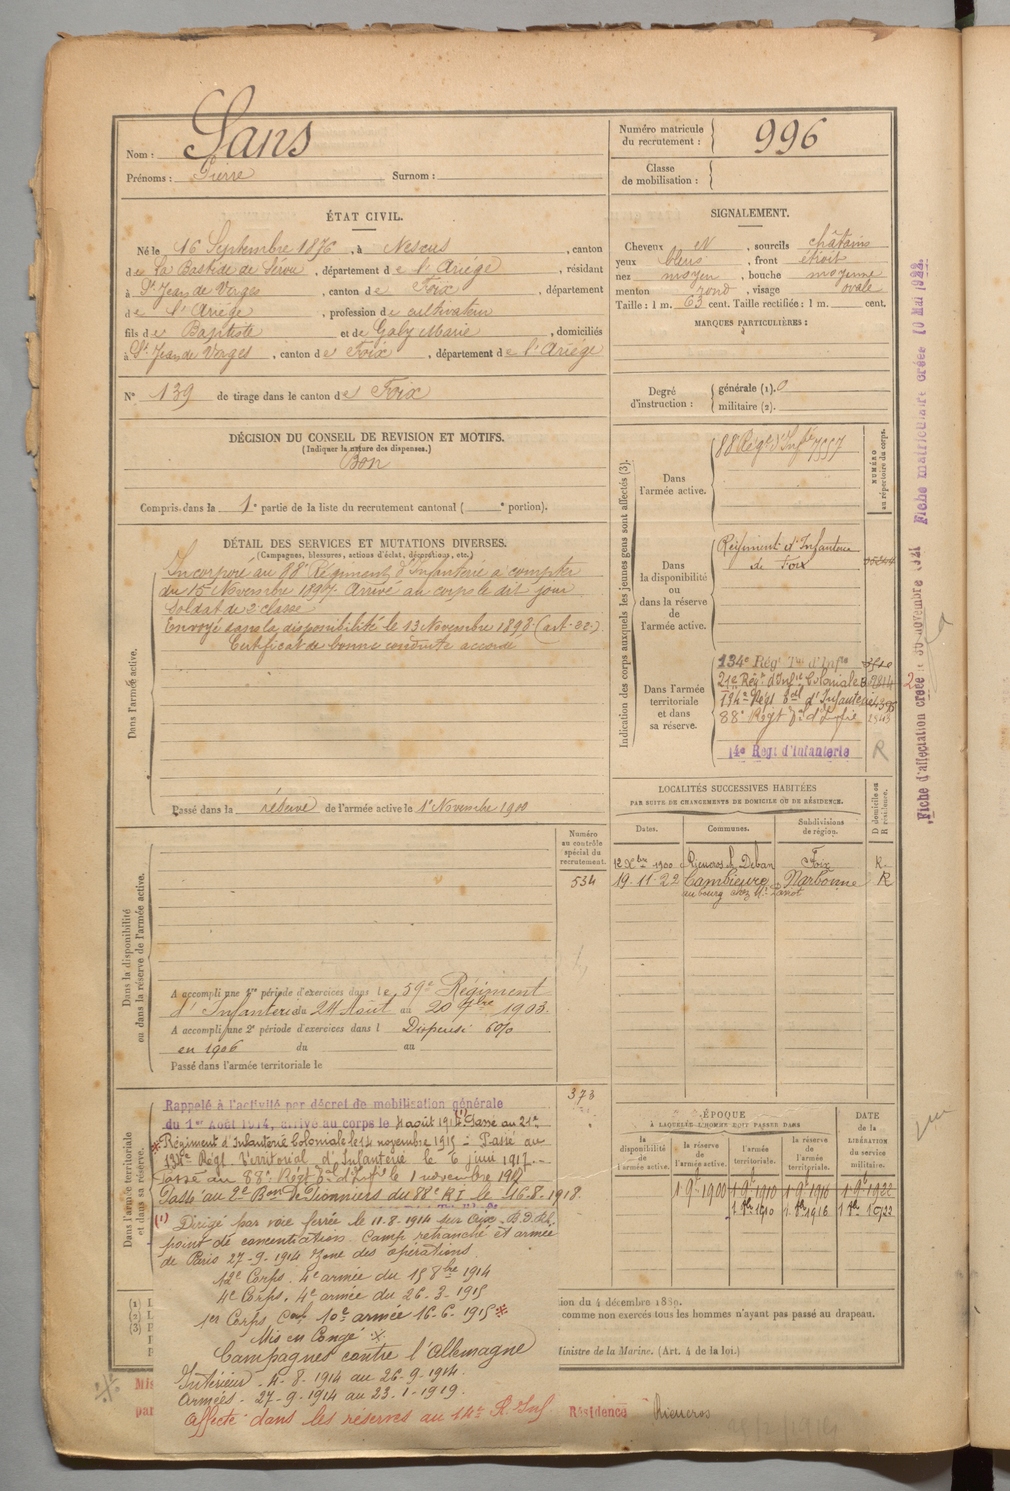 Nom : Sans
Prénoms : Pierre Surnom :
Numéro matricule du recrutement : 996
Classe de mobilisation :
ÉTAT CIVIL.
Né le 16 Septembre 1876, à Nescus, canton
de La Bastide de Sérou, département de l'Ariége, résidant
à St Jean de Verges, canton de Foix, département
de l'Ariége, profession de cultivateur
fils de Baptiste et de Galy Marie, domiciliés
à St Jean de Verges, canton de Foix, département de l'Ariége
N° 139 de tirage dans le canton de Foix
SIGNALEMENT.
Cheveux N, sourcils châtains
yeux bleus, front étroit
nez moyen, bouche moyenne
menton rond, visage ovale
Taille : 1 m. 63 cent. Taille rectifiée : 1 m. cent.
MARQUES PARTICULIÈRES :
Degré d'instruction : générale (1). 0
militaire (2).
DÉCISION DU CONSEIL DE REVISION ET MOTIFS.
(Indiquer la nature des dispenses.)
Bon
Compris dans la 1e partie de la liste du recrutement cantonal ( e portion).
DÉTAIL DES SERVICES ET MUTATIONS DIVERSES.
(Campagnes, blessures, actions d'éclat, décorations, etc.)
Dans l'armée active.
Incorporé au 88e Régiment d'Infanterie a compter
du 15 Novembre 1897. Arrivé au corps le dit jour
Soldat de 2e classe
Envoyé dans la disponibilité le 13 Novembre 1898 (art. 22.)
Certificat de bonne conduite accordé
Passé dans la réserve de l'armée active le 1er Novembre 1900
Indication des corps auxquels les jeunes gens sont affectés (3).
NUMÉRO au répertoire du corps.
Dans l'armée active.
88 Régt d'Infie 7557
Dans la disponibilité ou dans la réserve de l'armée active.
Régiment d'Infanterie
de Foix
Dans l'armée territoriale et dans sa réserve.
134e Régt Tal d'Infie
21e Régt d'Infie Coloniale
134e Régt Tal d'Infanterie
88e Régt Tal d'Infie 2343
14e Régt d'Infanterie R
Fiche d'affectation créée le 30 novembre 1921 Fiche matriculaire créée 10 Mai 1922.
LOCALITÉS SUCCESSIVES HABITÉES
PAR SUITE DE CHANGEMENTS DE DOMICILE OU DE RÉSIDENCE.
Dates. Communes. Subdivisions de région. D domicile ou R résidence.
12 Xbre 1900 Rieucros Foix R.
19.11.22 Cambieure Narbonne R
au bourg chez Mr
Numéro au contrôle spécial du recrutement.
534
Dans la disponibilité ou dans la réserve de l'armée active.
A accompli une 1re période d'exercices dans le 59e Régiment
d'Infanterie du 24 Août au 20 7bre 1903.
A accompli une 2e période d'exercices dans l Dispensé 60%
en 1906 du au
Passé dans l'armée territoriale le
373
Dans l'armée territoriale et dans sa réserve.
Rappelé à l'activité par décret de mobilisation générale
du 1er Août 1914, arrivé au corps le 4 août 1914 (1) Passé au 21e
Régiment d'Infanterie Coloniale le 14 novembre 1915 - Passé au
134e Régt Territorial d'Infanterie le 6 juin 1917. -
Passé au 88e Régt Tal d'Infie le 1 novembre 191
Passé au 2e Bon de Pionniers du 88e R I le 16.8.1918.
(1) Dirigé par voie ferrée le 11-8-1914 sur
point de concentration. Camp retranché et armée
de Paris 27-9-1914 zone des opérations
12e Corps. 4e armée du 15 8bre 1914
4e Corps. 4e armée du 26-3-1915
1er Corps 10e armée 16-6-1915
Mis en Congé
Campagnes contre l'Allemagne
Intérieur - 4-8-1914 au 26-9-1914.
Armées - 27-9-1914 au 23-1-1919.
Affecté dans les réserves au 14e R. Inf
Résidence Rieucros
ÉPOQUE
À LAQUELLE L'HOMME DOIT PASSER DANS
la disponibilité de l'armée active. la réserve de l'armée active. l'armée territoriale. la réserve de l'armée territoriale.
DATE de la LIBÉRATION du service militaire.
1 9bre 1900 1 9e 1910 1 9e 1916 1 9e 1922
1 8bre 1910 1 8bre 1916 1 8bre 1922
(1)
(2)
(3)
ion du 4 décembre 1889.
comme non exercés tous les hommes n'ayant pas passé au drapeau.
Ministre de la Marine. (Art. 4 de la loi.)